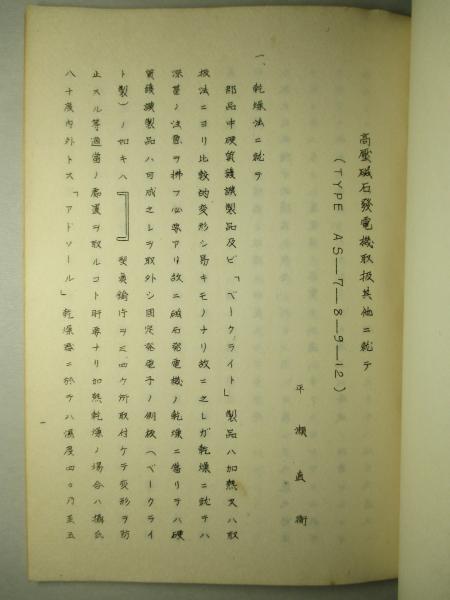 高壓磁石發電機取扱其他ニ就テ
(TYPE AS—7—8—9—12)
平瀬
一、乾燥法ニ就テ
部品中硬質護謨製品及ビ「ベークライト」製品ハ加熱又ハ取
扱法ニヨリ比較的変形シ易キモノナリ故ニ之レガ乾燥ニ就テハ
深甚ノ注意ヲ拂フ必要アリ故ニ磁石発電機ノ乾燥ニ當リテハ硬
質護謨製品ハ可成之レヲ取外シ固定発電子ノ側板(ベークライ
ト製)ノ如キハ 型ヲ四ケ所取付ケテ変形ヲ防
止スル等適當ノ處置ヲ取ルコト肝要ナリ加熱乾燥ノ場合ハ攝氏
八十度内外トス「アドソール」乾燥器ニ於テハ温度四〇乃至五
一